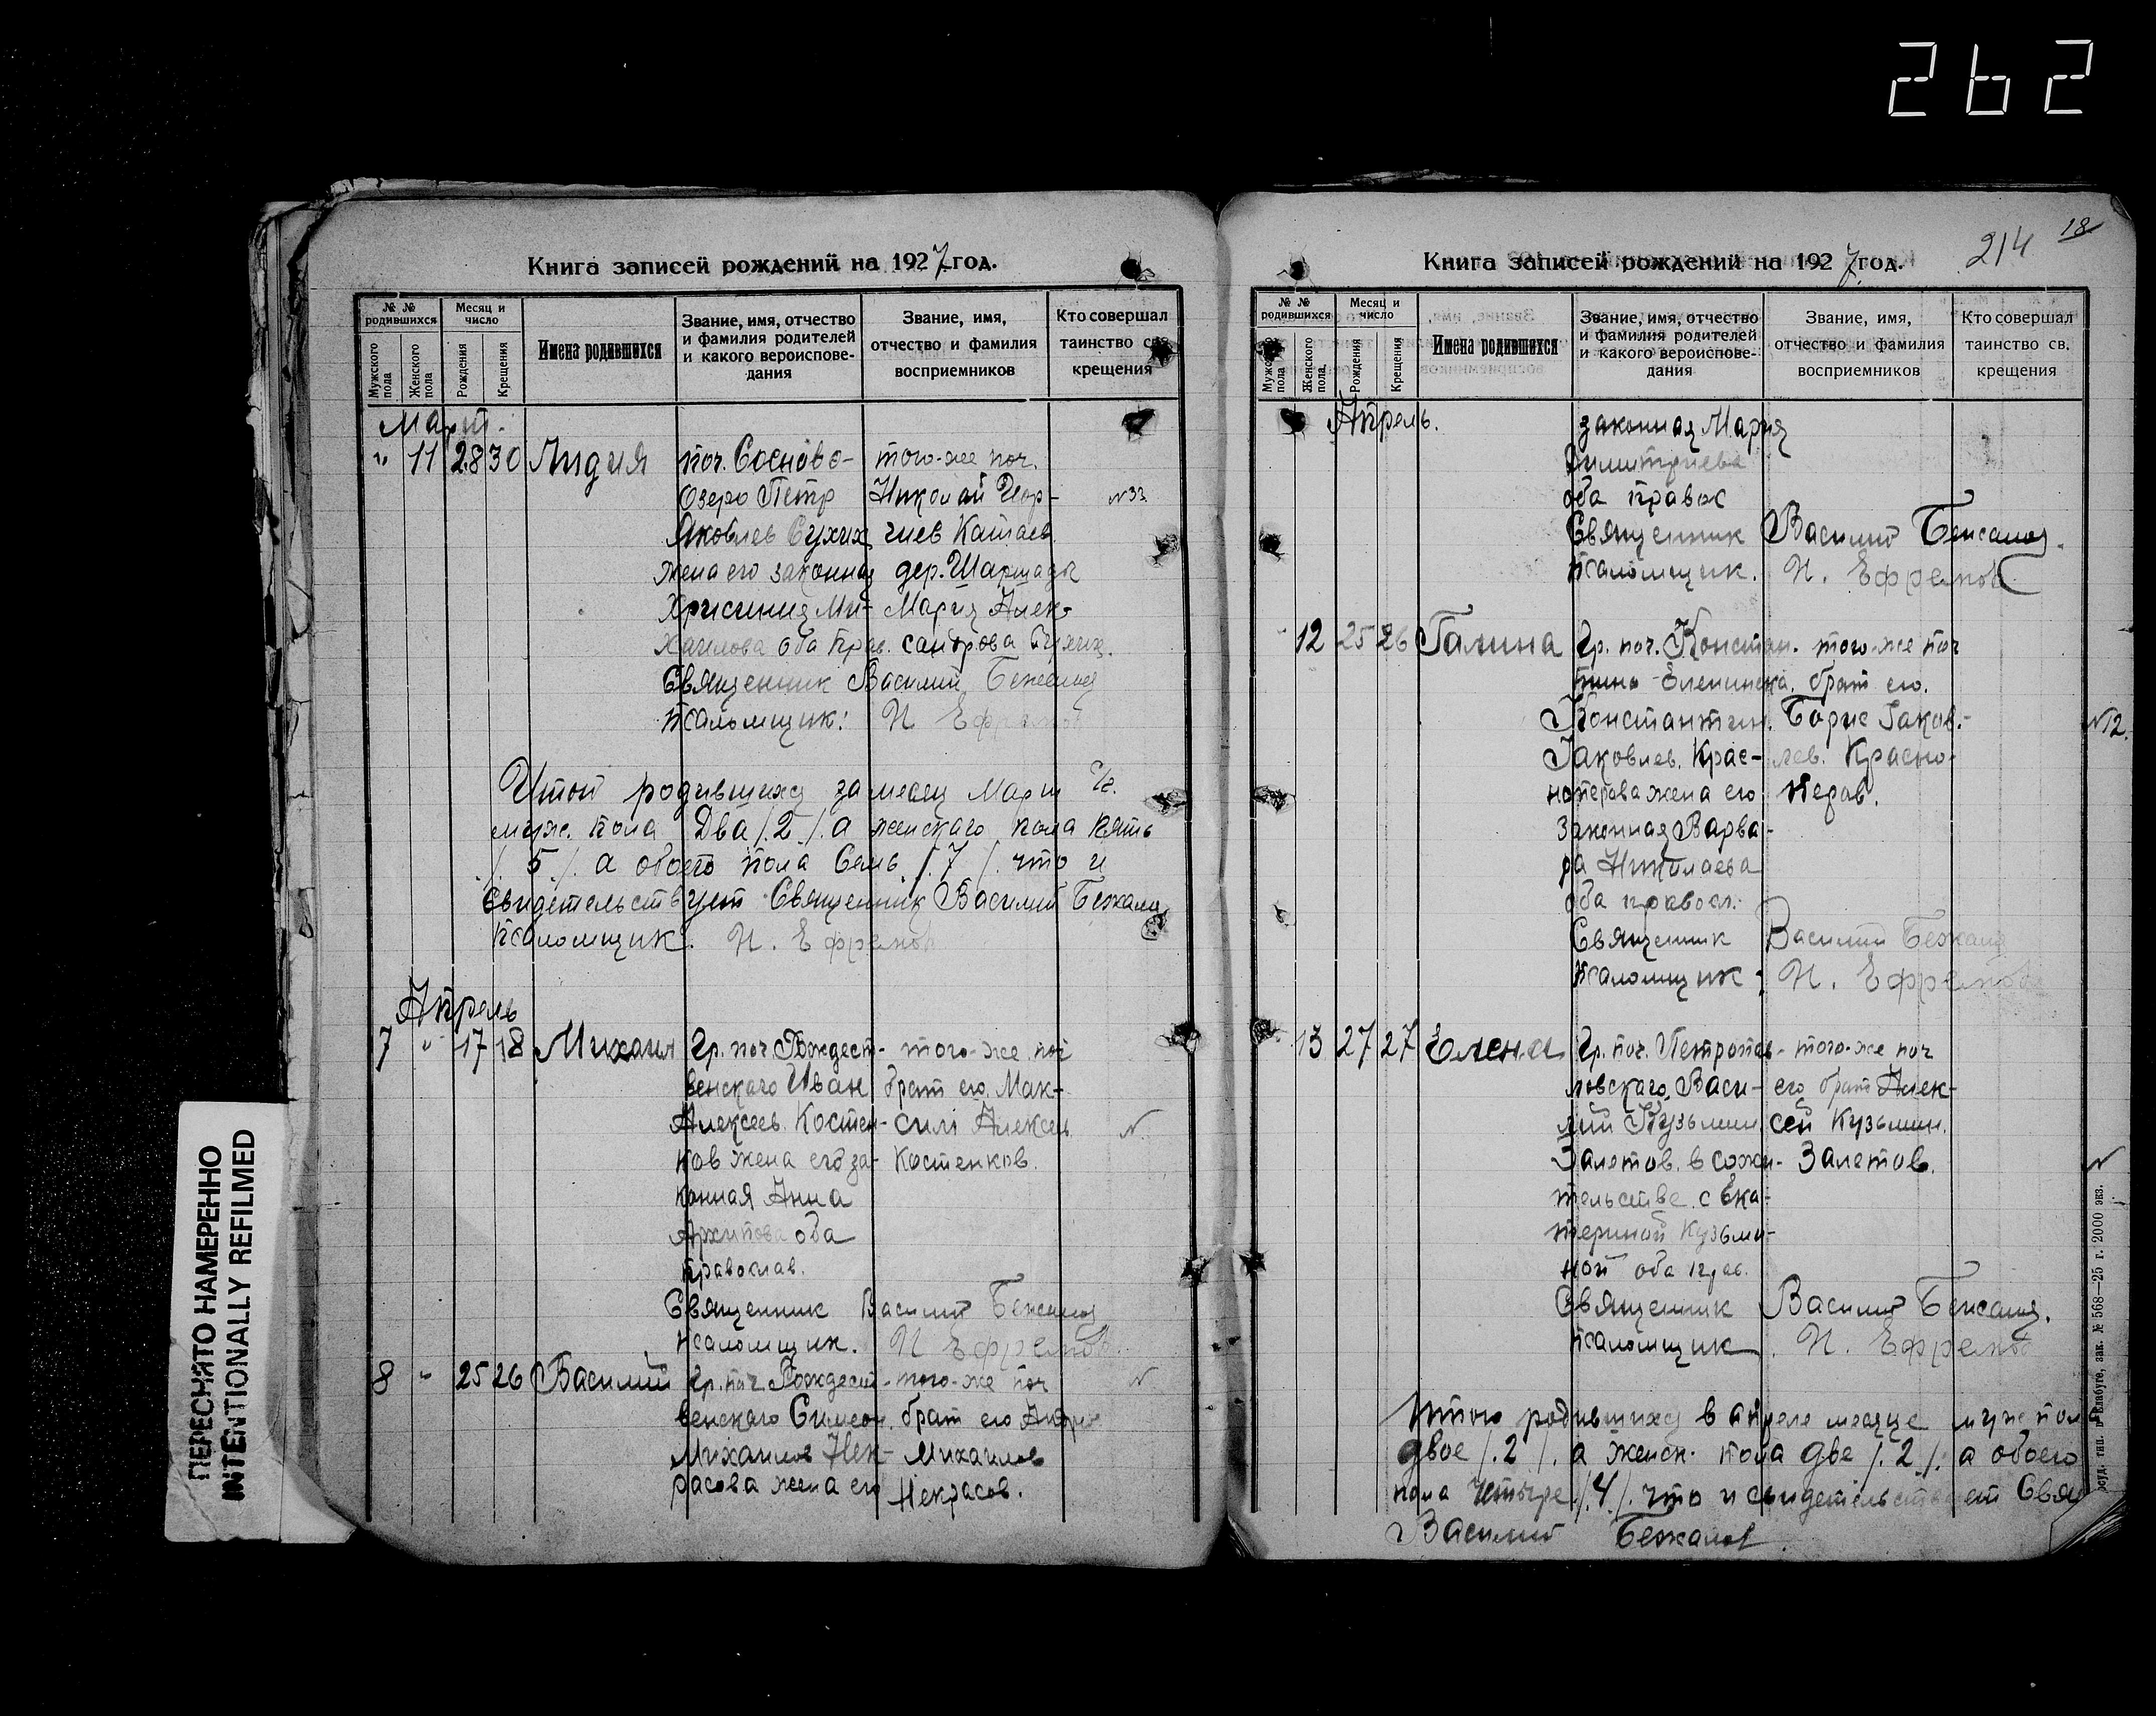 262
Книга записей рождений на 1927 год.
№ № родившихся
Мужского пола
Женского пола
Месяц и число
Рождения
Крещения
Имена родившихся
Звание, имя, отчество и фамилия родителей и какого вероиспове-дания
Звание, имя, отчество и фамилия восприемников
Кто совершал таинство св. крещения
Март.
" 11 28 30 Лидия поч. Сосново- того-же поч.
Озеро Петр Николай Геор- №33
Яковлев Сухих гиев Катаев
жена его законная дер. Шаршады
Христиния Ми- Мария Алек-
хаилова оба прав. сандрова Сухих.
Священник Василий
Псаломщик: И Ефремов
Итого родившихся за месяц Март
муж. пола Два /.2/. а женскаго пола пять
/. 5/. а обоего пола Семь /.7/. что и
Свидетельствует Священник Василий
Псаломщик. И. Ефремов
Апрель
7 " 17 18 Михаил Гр. поч. Рождест- того-же поч
венскаго Иван брат его Мак-
Алексеев. Костен- сим Алексеев N
ков жена его за- Костенков.
конная Анна
Архипова оба
Православ.
Священник Василий
Псаломщик. И Ефремов
8 " 25 26 Василий Гр. поч Рождест- того-же поч N
венскаго Симеон брат его
Михаилов Нек- Михаилов
расова жена его Некрасов.
ПЕРЕСНЯТО НАМЕРЕННО
INTENTIONALLY REFILMED
214 18
Книга записей рождений на 1927 год.
№ № родившихся
Мужского пола
Женского пола.
Месяц и число
Рождения
Крещения
Имена родившихся
Звание, имя, отчество и фамилия родителей и какого вероиспове-дания
Звание, имя, отчество и фамилия восприемников
Кто совершал таинство св. крещения
Апрель. законная Мария
Димитриева
оба правос
Священник Василий
Псаломщик. И. Ефремов
12 25 26 Галина Гр. поч. Констан- того-же поч
тино-Еленинска. брат его.
Константин. Борис Иаков- N12.
Иаковлев. Крас- лев. Красно-
ноперова жена его перов.
Законная Варва-
ра Николаева
оба правосл.
Священник Василий
Псаломщик: И. Ефремов
13 27 27 Елена Гр. поч. Петропав- того-же поч
ловскаго Васи- его брат Алек-
лий Кузьмин сей Кузьмин.
Залетов. в сожи- Залетов. N
тельстве с Ека-
териной Кузьми-
ной оба прав.
Священник Василий
Псаломщик. И. Ефремов
Итого родившихся в апреле месяце муж пола
двое /.2/. а женск. пола две /.2/. а обоего
пола Четыре /.4/. что и свидетельствует Свящ
Василий
тип. Елабуге, зак. № 568—25 г. 2000 экз.